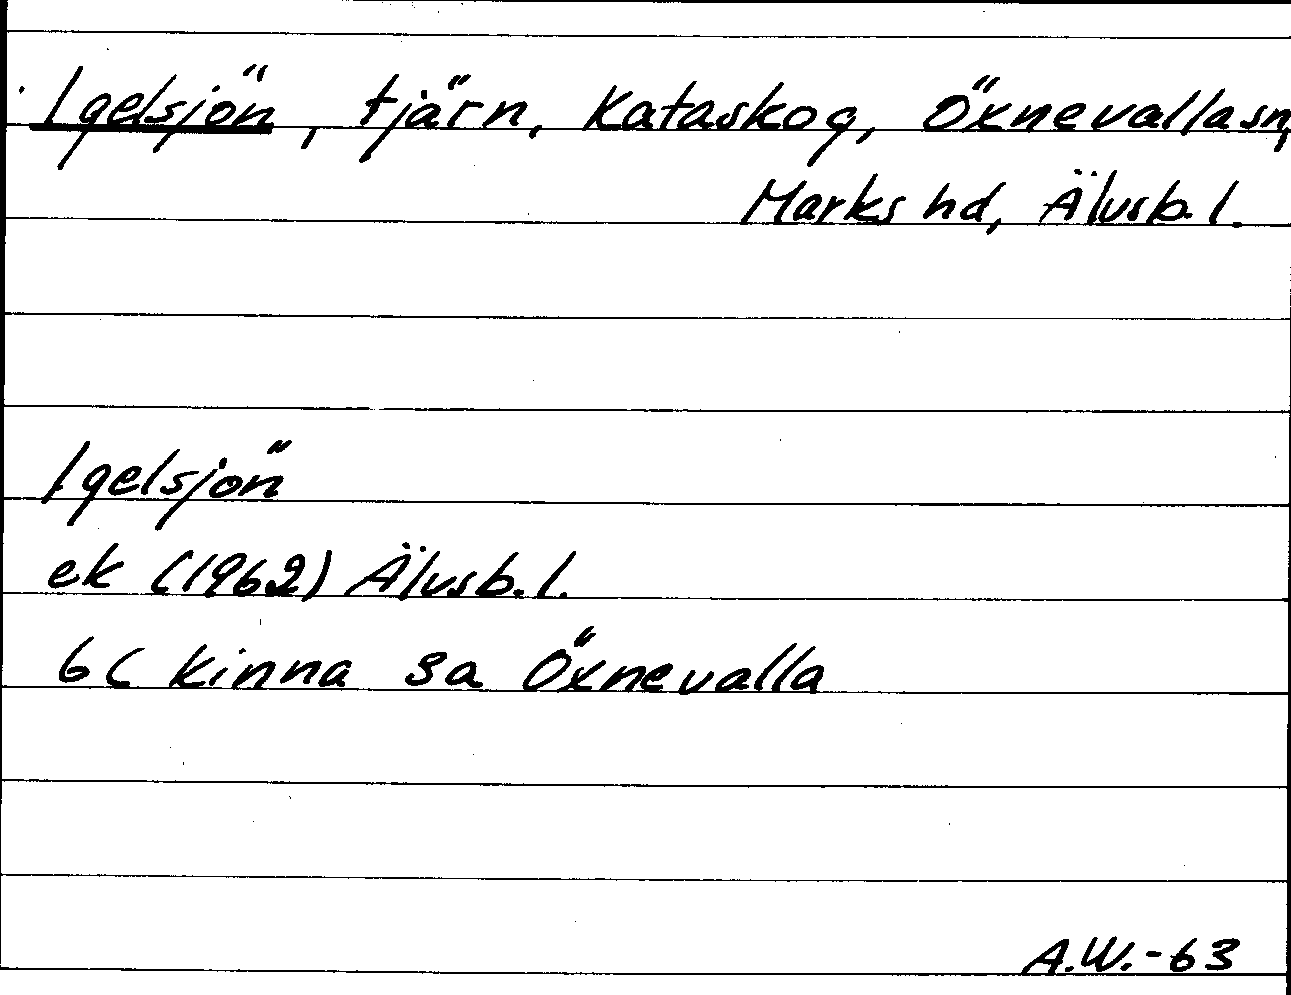 Igelsjön, tjärn, Kataskog, Öxnevalla sn,
Marks hd, Älvsb. l.
Igelsjön
ek (1962) Älvsb. l.
6C Kinna 8a Öxnevalla
A.W.-63